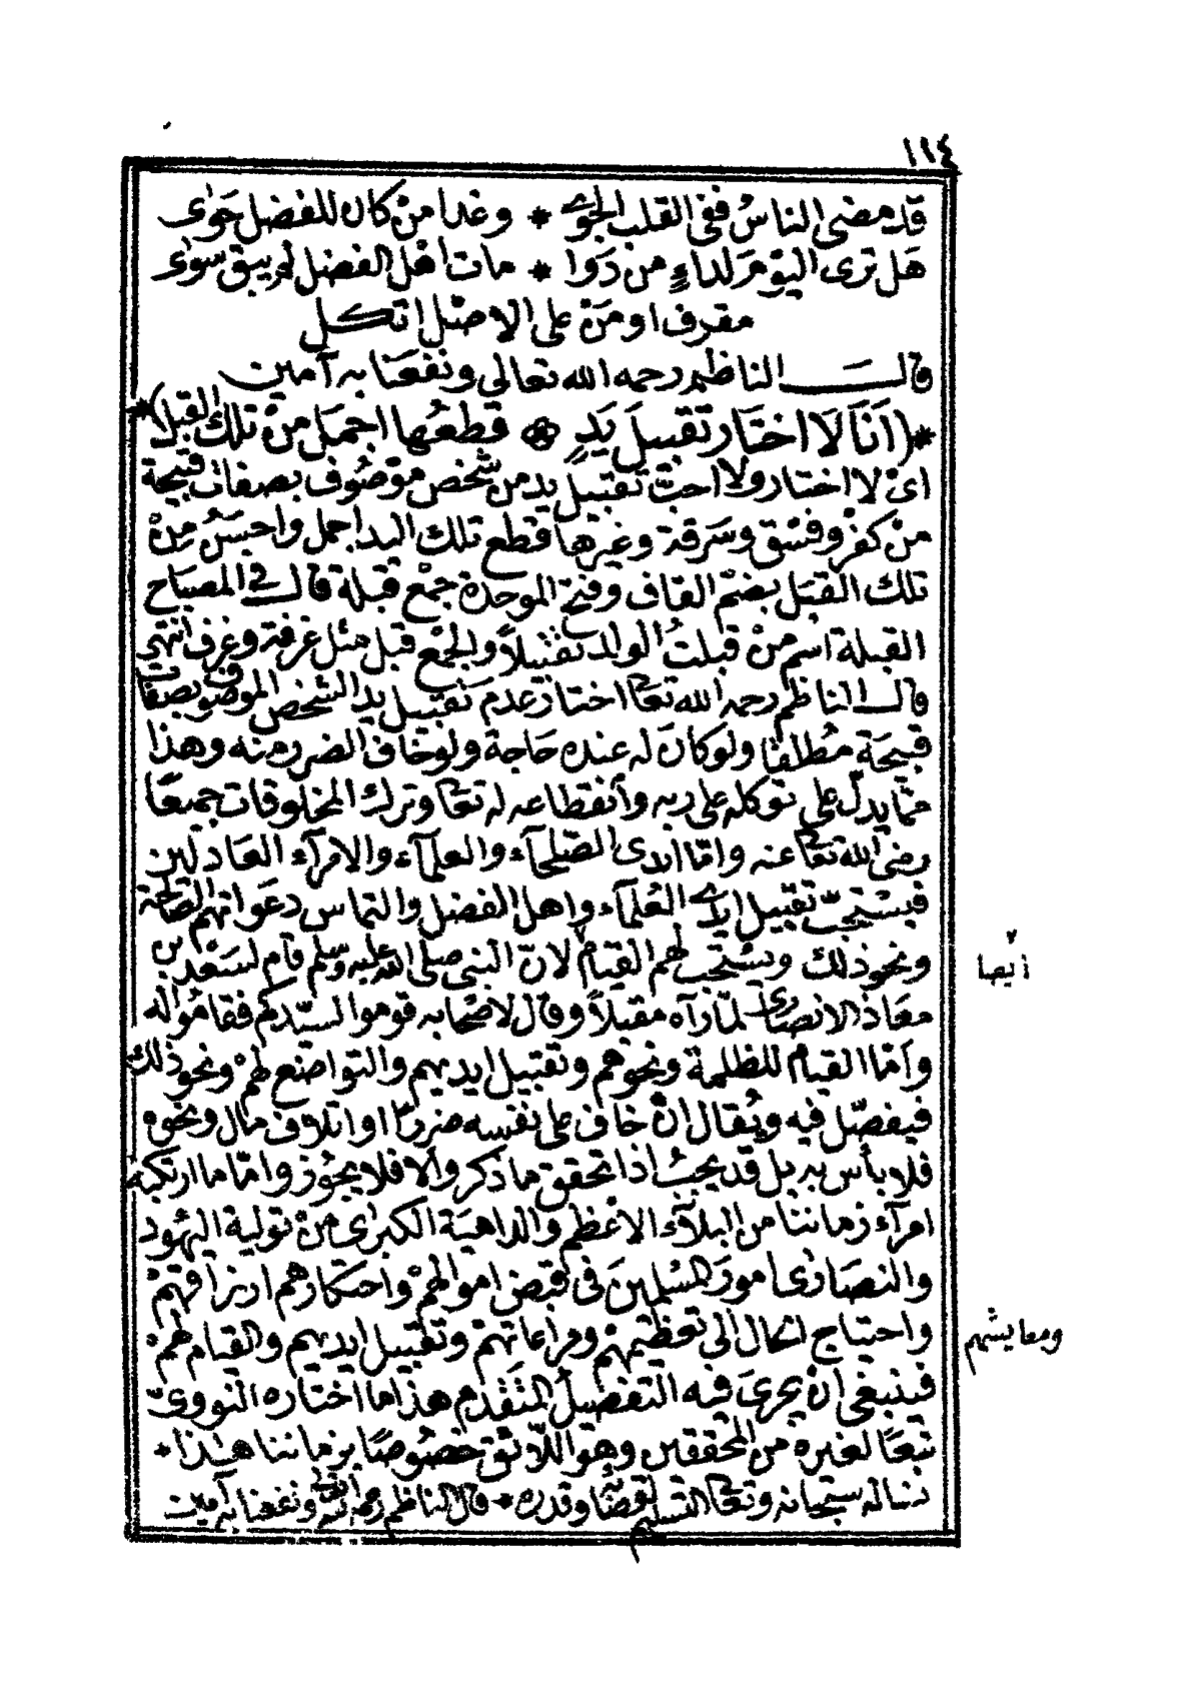 ١١٤
قد مضى الناس ففى القلب الجوى * وغدا من كان للفضل حوى
هل ترى اليوم لداء من دوا * مات اهل الفضل لم يبق سوى
مقرف او من على الاصل اتكل
قال الناظم رحمه الله تعالى ونفعنا به آمين
*(أَنَا لَا اختار تقبيلَ يَدٍ ۞ قطعُها اجمل من تلك القبل)*
اى لا اختار ولا احبّ تقبيل يد من شخص موصوف بصفات قبيحة
من كفر وفسق وسرقة وغيرها قطع تلك اليد اجمل واحسن من
تلك القبل بضمّ القاف وفتح الموحدة جمع قبلة قال في المصباح
القبلة اسم من قبلت الولد تقبيلاً والجمع قبل مثل غرفة وغرف انتهى
قال الناظم رحمه الله تعا اختار عدم تقبيل يد الشخص الموصوف بصفات
قبيحة مطلقا ولو كان له عنده حاجة ولو خاف الضرر منه وهذا
ممّا يدلّ على توكله على ربه وأنقطاعه له تعا وترك المخلوقات جميعًا
رضى الله تعا عنه وامّا ايدى الصّلحآء والعلمآء والامرآء العادلين
فيستحبّ تقبيل ايدى العُلمآء واهل الفضل والتماس دعواتهم الصّالحة
ونحو ذلك ويستحب لهم القيام لانّ النبى صلى الله عليه وسلم قام لسعد بن
ايضا
معاذ الانصارى لمّا رآه مقبلاً وقال لاصحابه قوموا لسيّدكم فقاموا له
وأمّا القيام للظلمة ونحوهم وتقبيل ايديهم والتواضع لهم ونحو ذلك
فيفصّل فيه ويُقال ان خاف على نفسه ضررًا او اتلاف مال ونحوه
فلا بأس به بل قد يجبُ اذا تحقق ما ذكر والا فلا يجوز وامّا ما ارتكبه
امرآء زماننا من البلآء الاعظم والداهيَة الكبرى من تولية اليهُود
والنصارى امورَ المسلمينَ فى قبض اموالهم واحتكارهم ارزاقهم
ومعايشهم
واحتياج الحال الى تعظيمهم ومراعاتهم وتقبيل ايديهم والقيام لهم
فينبغى ان يجرىَ فيه التفصيلُ المتقدم هذا ما اختاره النووىّ
تبعًا لغيره من المحققين وهو اللّائق خصُوصًا بزماننا هذا *
نسأله سبحانه وتعا التسليم لقضائه وقدره * قال الناظم رحمه الله تعا ونفعنا به آمين